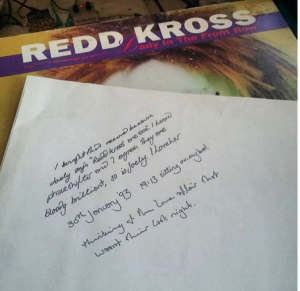 REDD KROSS
Lady In The Front Row
I bought this record because
says "Redd Kross are best I heard
and I agree they are
bloody brilliant, so is
30th January '93 19:13 sitting
thinking of the love affair that
wasn't their last night.